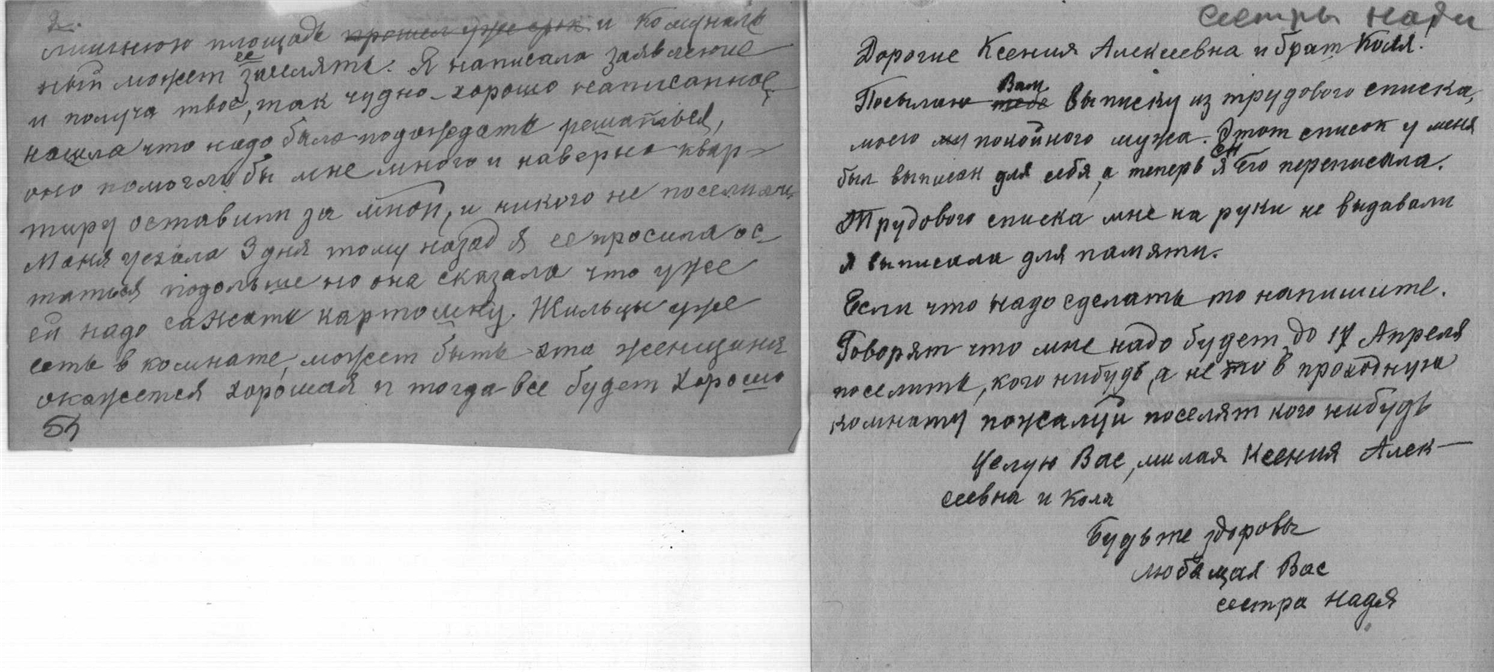 2.
лишнюю площадь прошел уже срок и комуналь
ный может ее заселять. Я написала заявление
и получа твое, так чудно-хорошо написанное,
нашла что надо было подождать решаться,
оно помогло бы мне много и наверно квар-
тиру оставит за мной, и никого не поселили
Маня уехала 3 дня тому назад я ее просила ос-
таться подольше но она сказала что уже
ей надо сажать картошку. Жильцы уже
есть в комнате, может быть эта женщина
окажется хорошая и тогда все будет хорошо
сестры нади
Дорогие Ксения Алексеевна и брат Коля.
Посылаю тебе Вам выписку из трудового списка,
моего покойного мужа. Этот список у меня
был выписан для себя, а теперь я его переписала.
Трудового списка мне на руки не выдавали
я выписала для памяти.
Если что надо сделать то напишите.
Говорят что мне надо будет до 17 Апреля
поселить, кого нибудь, а не то в проходную
комнату пожалуй поселят кого нибудь
Целую Вас, милая Ксения Алек-
сеевна и Коля
Будьте здоровы
любящая Вас
сестра Надя